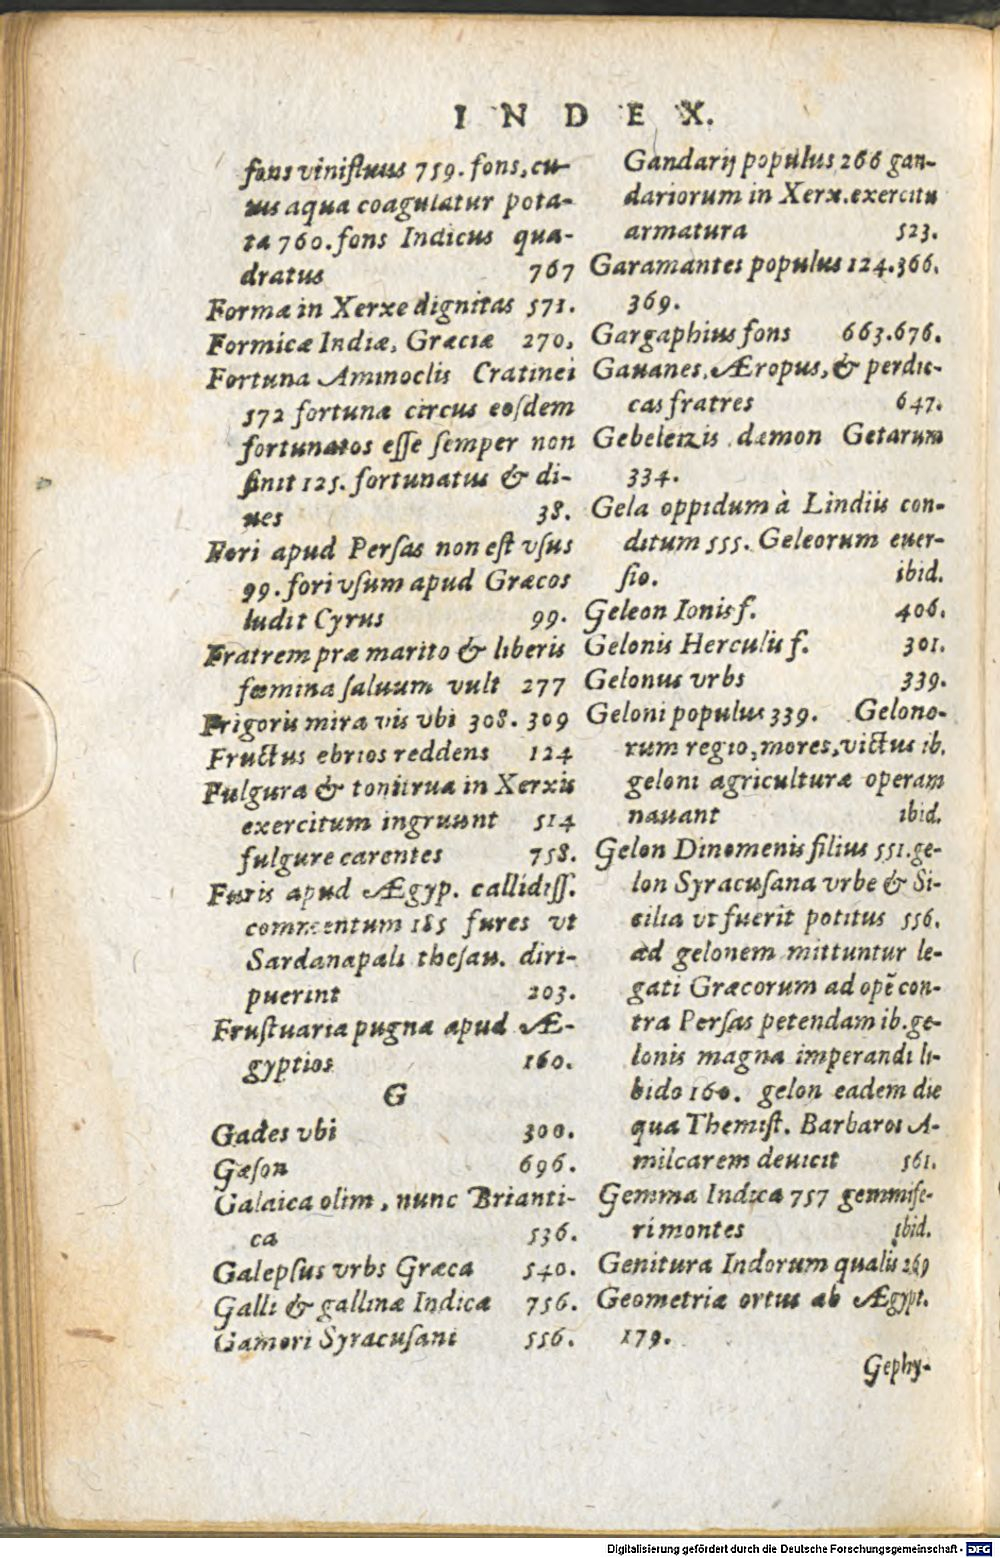 INDEX.
fons viniſluus 759. fons, cu-
ius aqua coagulatur pota-
ta 760. fons Indicus qua-
dratus 767
Forma in Xerxe dignitas 571.
Formicæ Indiæ, Græciæ 270,
Fortuna Aminoclis Cratinei
572 fortunæ circus eoſdem
fortunatos eſſe ſemper non
ſinit 125. fortunatus & di-
ues 38.
Fori apud Perſas non eſt vſus
99. fori vſum apud Græcos
ludit Cyrus 99.
Fratrem præ marito & liberis
fœmina ſaluum vult 277
Frigoris mira vis vbi 308. 309
Fructus ebrios reddens 124
Fulgura & tonitrua in Xerxis
exercitum ingruunt 514
fulgure carentes 758.
Furis apud Ægyp. callidiſſ.
commentum 185 fures vt
Sardanapali theſau. diri-
puerint 203.
Fruſtuaria pugna apud Æ-
gyptios 160.
G
Gades vbi 300.
Gæſon 696.
Galaica olim, nunc Brianti-
ca 536.
Galepſus vrbs Græca 540.
Galli & gallinæ Indica 756.
Gamori Syracuſani 556.
Gandarij populus 266 gan-
dariorum in Xerx. exercitu
armatura 523.
Garamantes populus 124. 366.
369.
Gargaphius fons 663. 676.
Gauanes, Æropus, & perdic-
cas fratres 647.
Gebeleizis dæmon Getarum
334.
Gela oppidum à Lindiis con-
ditum 555. Geleorum euer-
ſio. ibid.
Geleon Ionis f. 406.
Gelonis Herculis f. 301.
Gelonus vrbs 339.
Geloni populus 339. Gelono-
rum regio, mores, victus ib.
geloni agriculturæ operam
nauant ibid.
Gelon Dinomenis filius 551. ge-
lon Syracuſana vrbe & Si-
cilia vt fuerit potitus 556.
ad gelonem mittuntur le-
gati Græcorum ad opē con-
tra Perſas petendam ib. ge-
lonis magna imperandi li-
bido 160. gelon eadem die
qua Themiſt. Barbaros A-
milcarem deuicit 561.
Gemma Indica 757 gemmife-
ri montes ibid.
Genitura Indorum qualis 269
Geometriæ ortus ab Ægypt.
179.
Gephy-
Digitalisierung gefördert durch die Deutsche Forschungsgemeinschaft - DFG